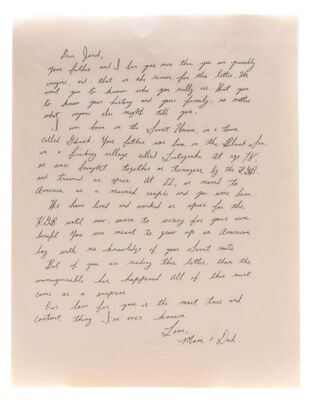 Dear Jared,
Your father and I love you more than you can possibly
imagine and that is the reason for this letter. We
want you to know who you really are. Want you
to know your history and your family, no matter
what anyone else might tell you.
I was born in the Soviet Union, in a town
called. Your father was born on the Black Sea,
in a fishing village called. At age 18,
we were brought together as teenagers by the KGB
and trained as spies. At 22, we moved to
America as a married couple and you were born.
We have lived and worked as spies for the
KGB until now, sworn to secrecy for your own
benefit. You were meant to grow up an American
boy with no knowledge of your Soviet roots.
But if you are reading this letter, then the
unimaginable has happened. All of this must
come as a surprise.
Our love for you is the most true and
constant thing I've ever known.
Love,
Mom & Dad.